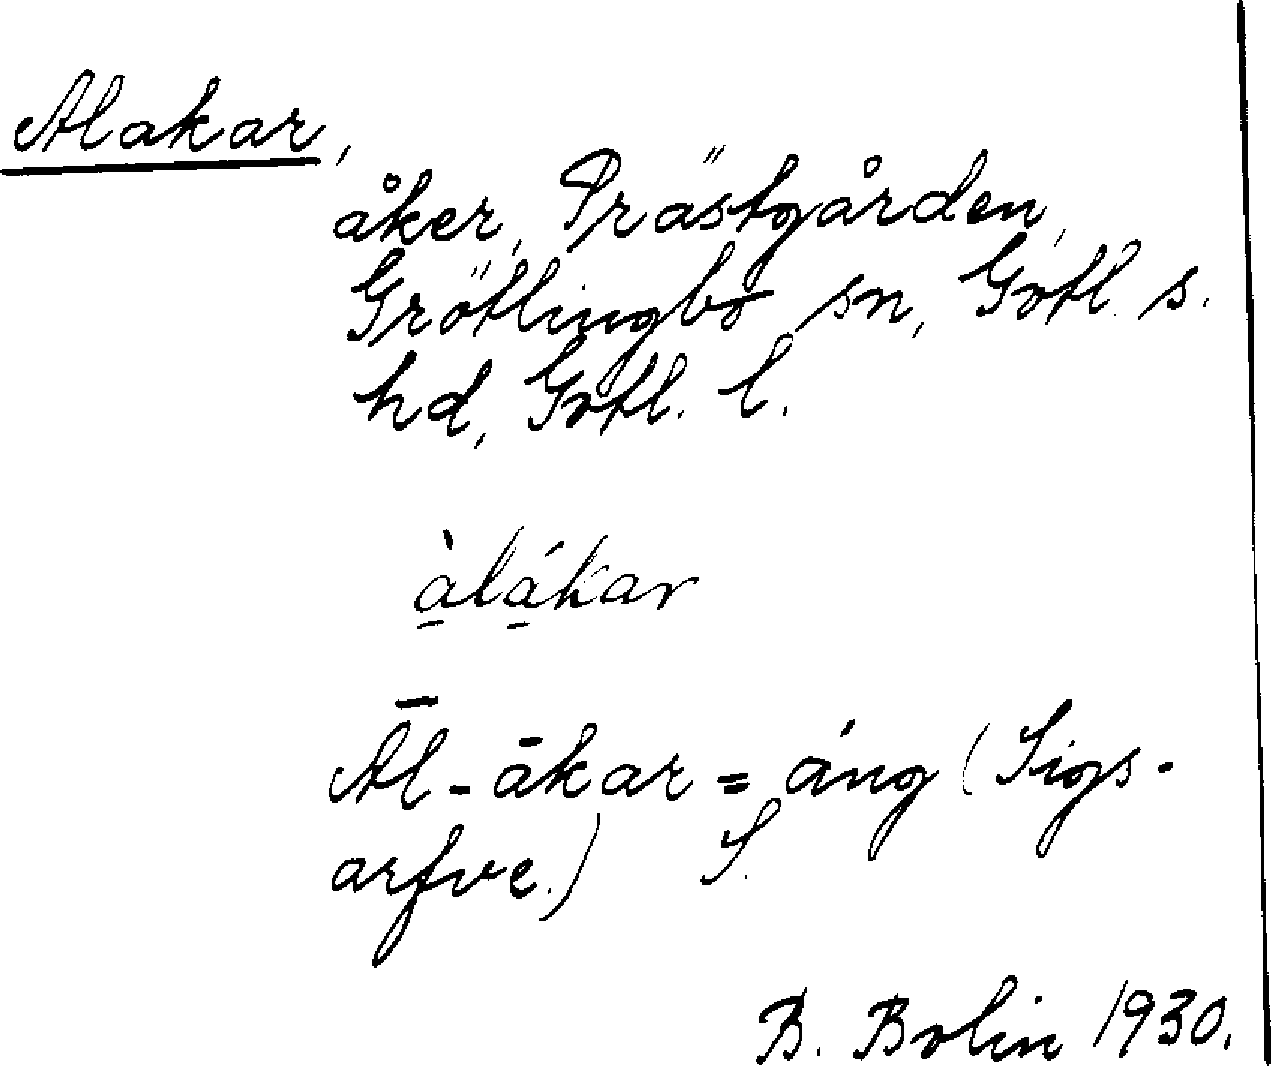 Alakar,
åker, Prästgården,
Grötlingbo sn, Gotl. s.
hd, Gotl. l.
à̲lá̲kar
Āl-ākar = áng (Sigs-
arfve.) S.
B. Bolin 1930.